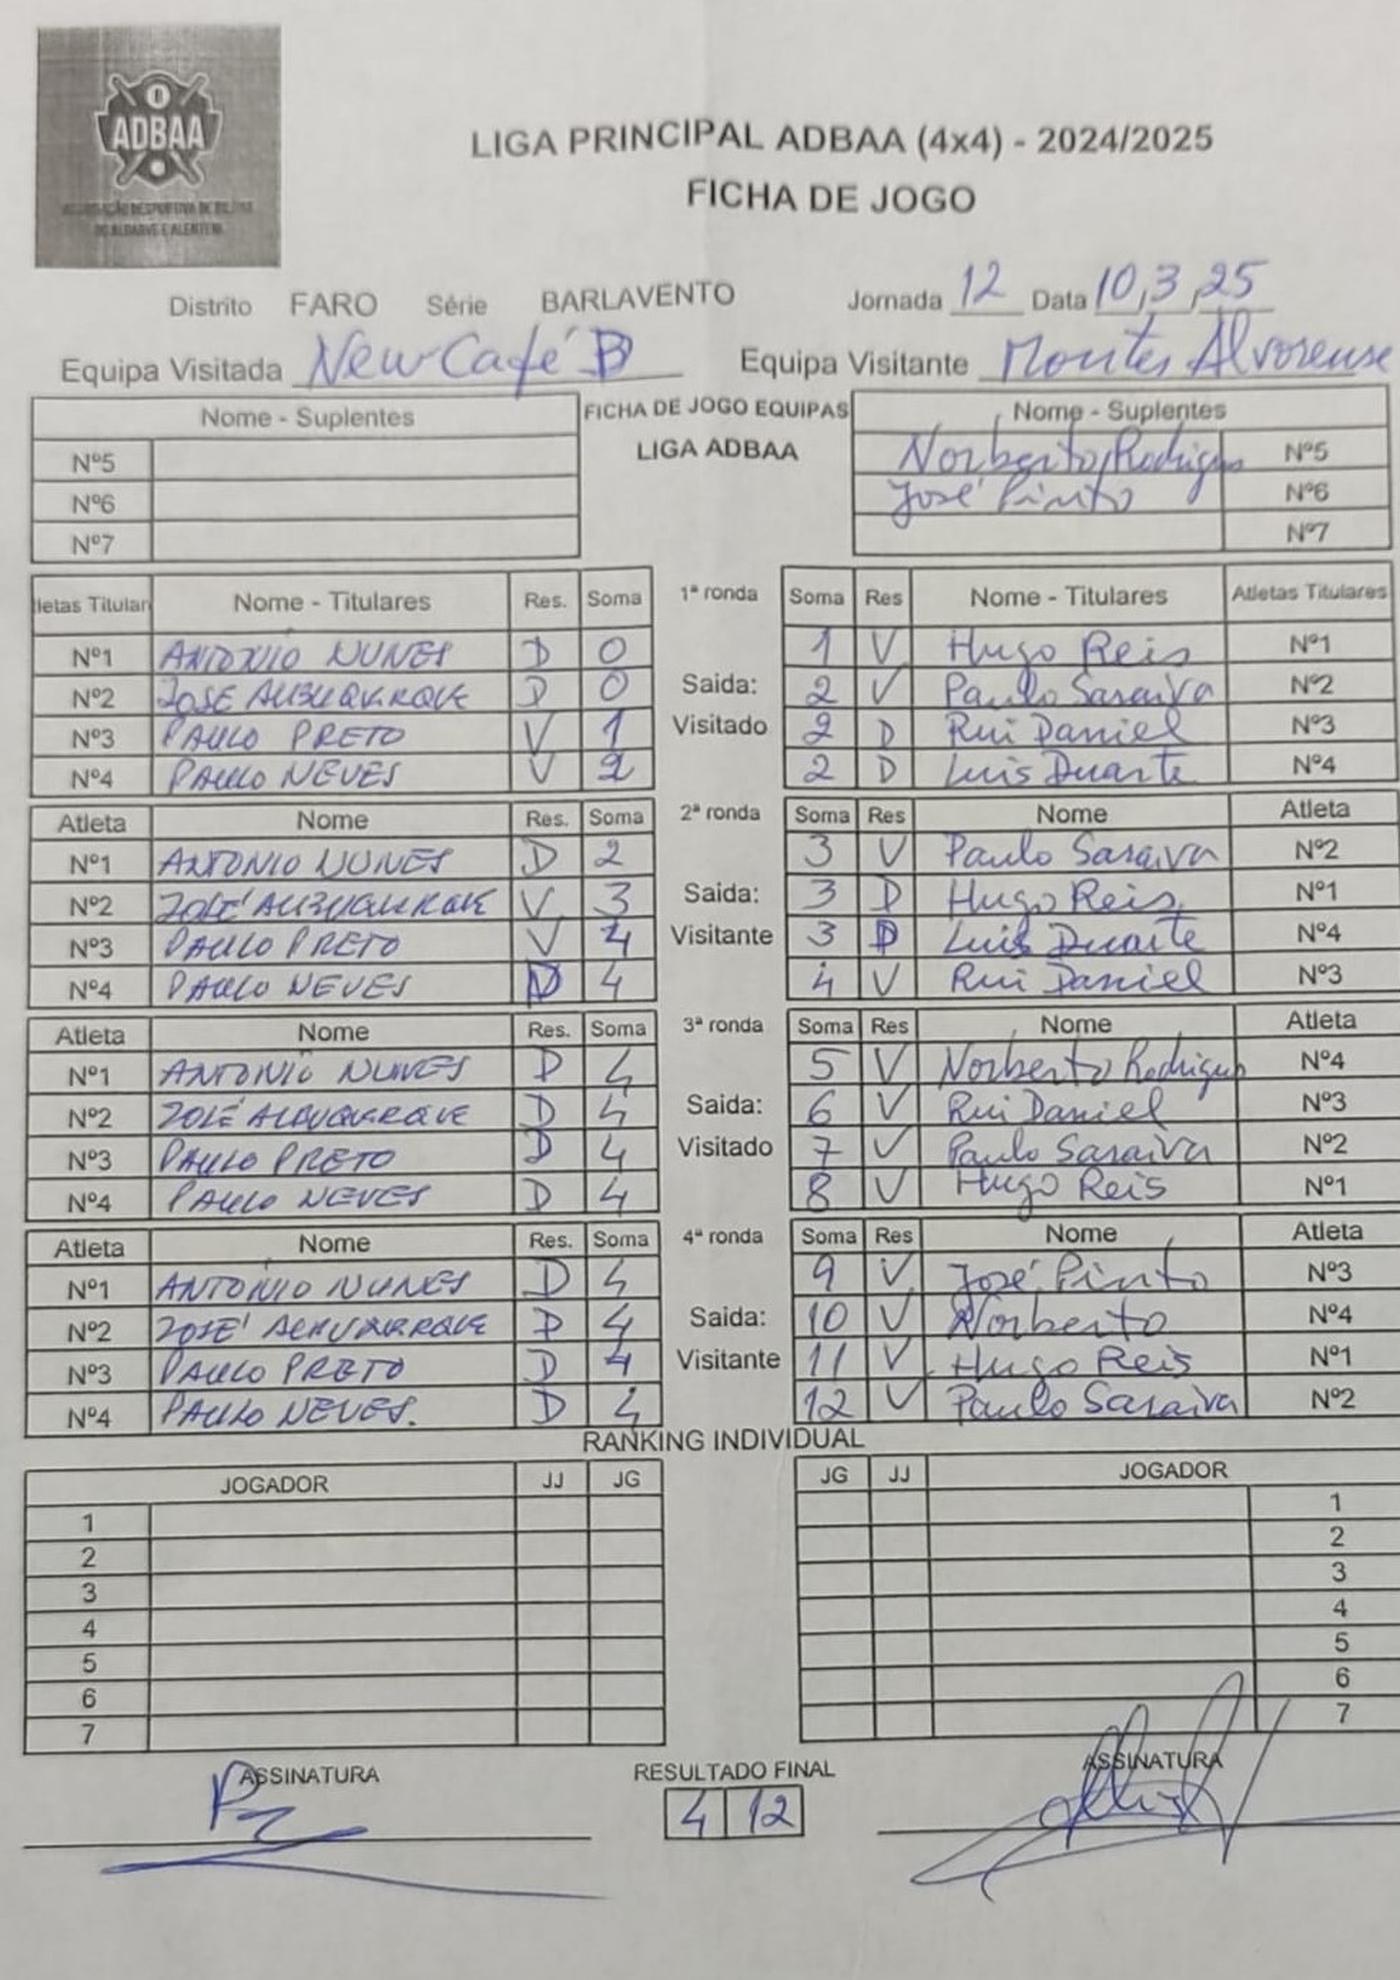 ADBAA
ASSOCIAÇÃO DESPORTIVA DE BILHAR
DO ALGARVE E ALENTEJO
LIGA PRINCIPAL ADBAA (4x4) - 2024/2025
FICHA DE JOGO
Distrito FARO Série BARLAVENTO Jornada 12 Data 10,3,25
Equipa Visitada New Café B Equipa Visitante Montes Alvorense
Nome - Suplentes FICHA DE JOGO EQUIPAS Nome - Suplentes
LIGA ADBAA
Nº5 Norberto Rodrigues Nº5
Nº6 José Pinto Nº6
Nº7 Nº7
letas Titular Nome - Titulares Res. Soma 1ª ronda Soma Res Nome - Titulares Atletas Titulares
Nº1 ANTONIO NUNES D 0 1 V Hugo Reis Nº1
Nº2 JOSE ALBUQUERQUE D 0 Saida: 2 V Paulo Saraiva Nº2
Nº3 PAULO PRETO V 1 Visitado 2 D Rui Daniel Nº3
Nº4 PAULO NEVES V 2 2 D Luis Duarte Nº4
Atleta Nome Res. Soma 2ª ronda Soma Res Nome Atleta
Nº1 ANTONIO NUNES D 2 3 V Paulo Saraiva Nº2
Nº2 JOSÉ ALBUQUERQUE V 3 Saida: 3 D Hugo Reis Nº1
Nº3 PAULO PRETO V 4 Visitante 3 D Luis Duarte Nº4
Nº4 PAULO NEVES D 4 4 V Rui Daniel Nº3
Atleta Nome Res. Soma 3ª ronda Soma Res Nome Atleta
Nº1 ANTONIO NUNES D 4 5 V Norberto Rodrigues Nº4
Nº2 JOSÉ ALBUQUERQUE D 4 Saida: 6 V Rui Daniel Nº3
Nº3 PAULO PRETO D 4 Visitado 7 V Paulo Saraiva Nº2
Nº4 PAULO NEVES D 4 8 V Hugo Reis Nº1
Atleta Nome Res. Soma 4ª ronda Soma Res Nome Atleta
Nº1 ANTÓNIO NUNES D 4 9 V José Pinto Nº3
Nº2 JOSÉ ALBUQUERQUE D 4 Saida: 10 V Norberto Nº4
Nº3 PAULO PRETO D 4 Visitante 11 V Hugo Reis Nº1
Nº4 PAULO NEVES. D 4 12 V Paulo Saraiva Nº2
RANKING INDIVIDUAL
JOGADOR JJ JG JG JJ JOGADOR
1 1
2 2
3 3
4 4
5 5
6 6
7 7
ASSINATURA RESULTADO FINAL ASSINATURA
4 12